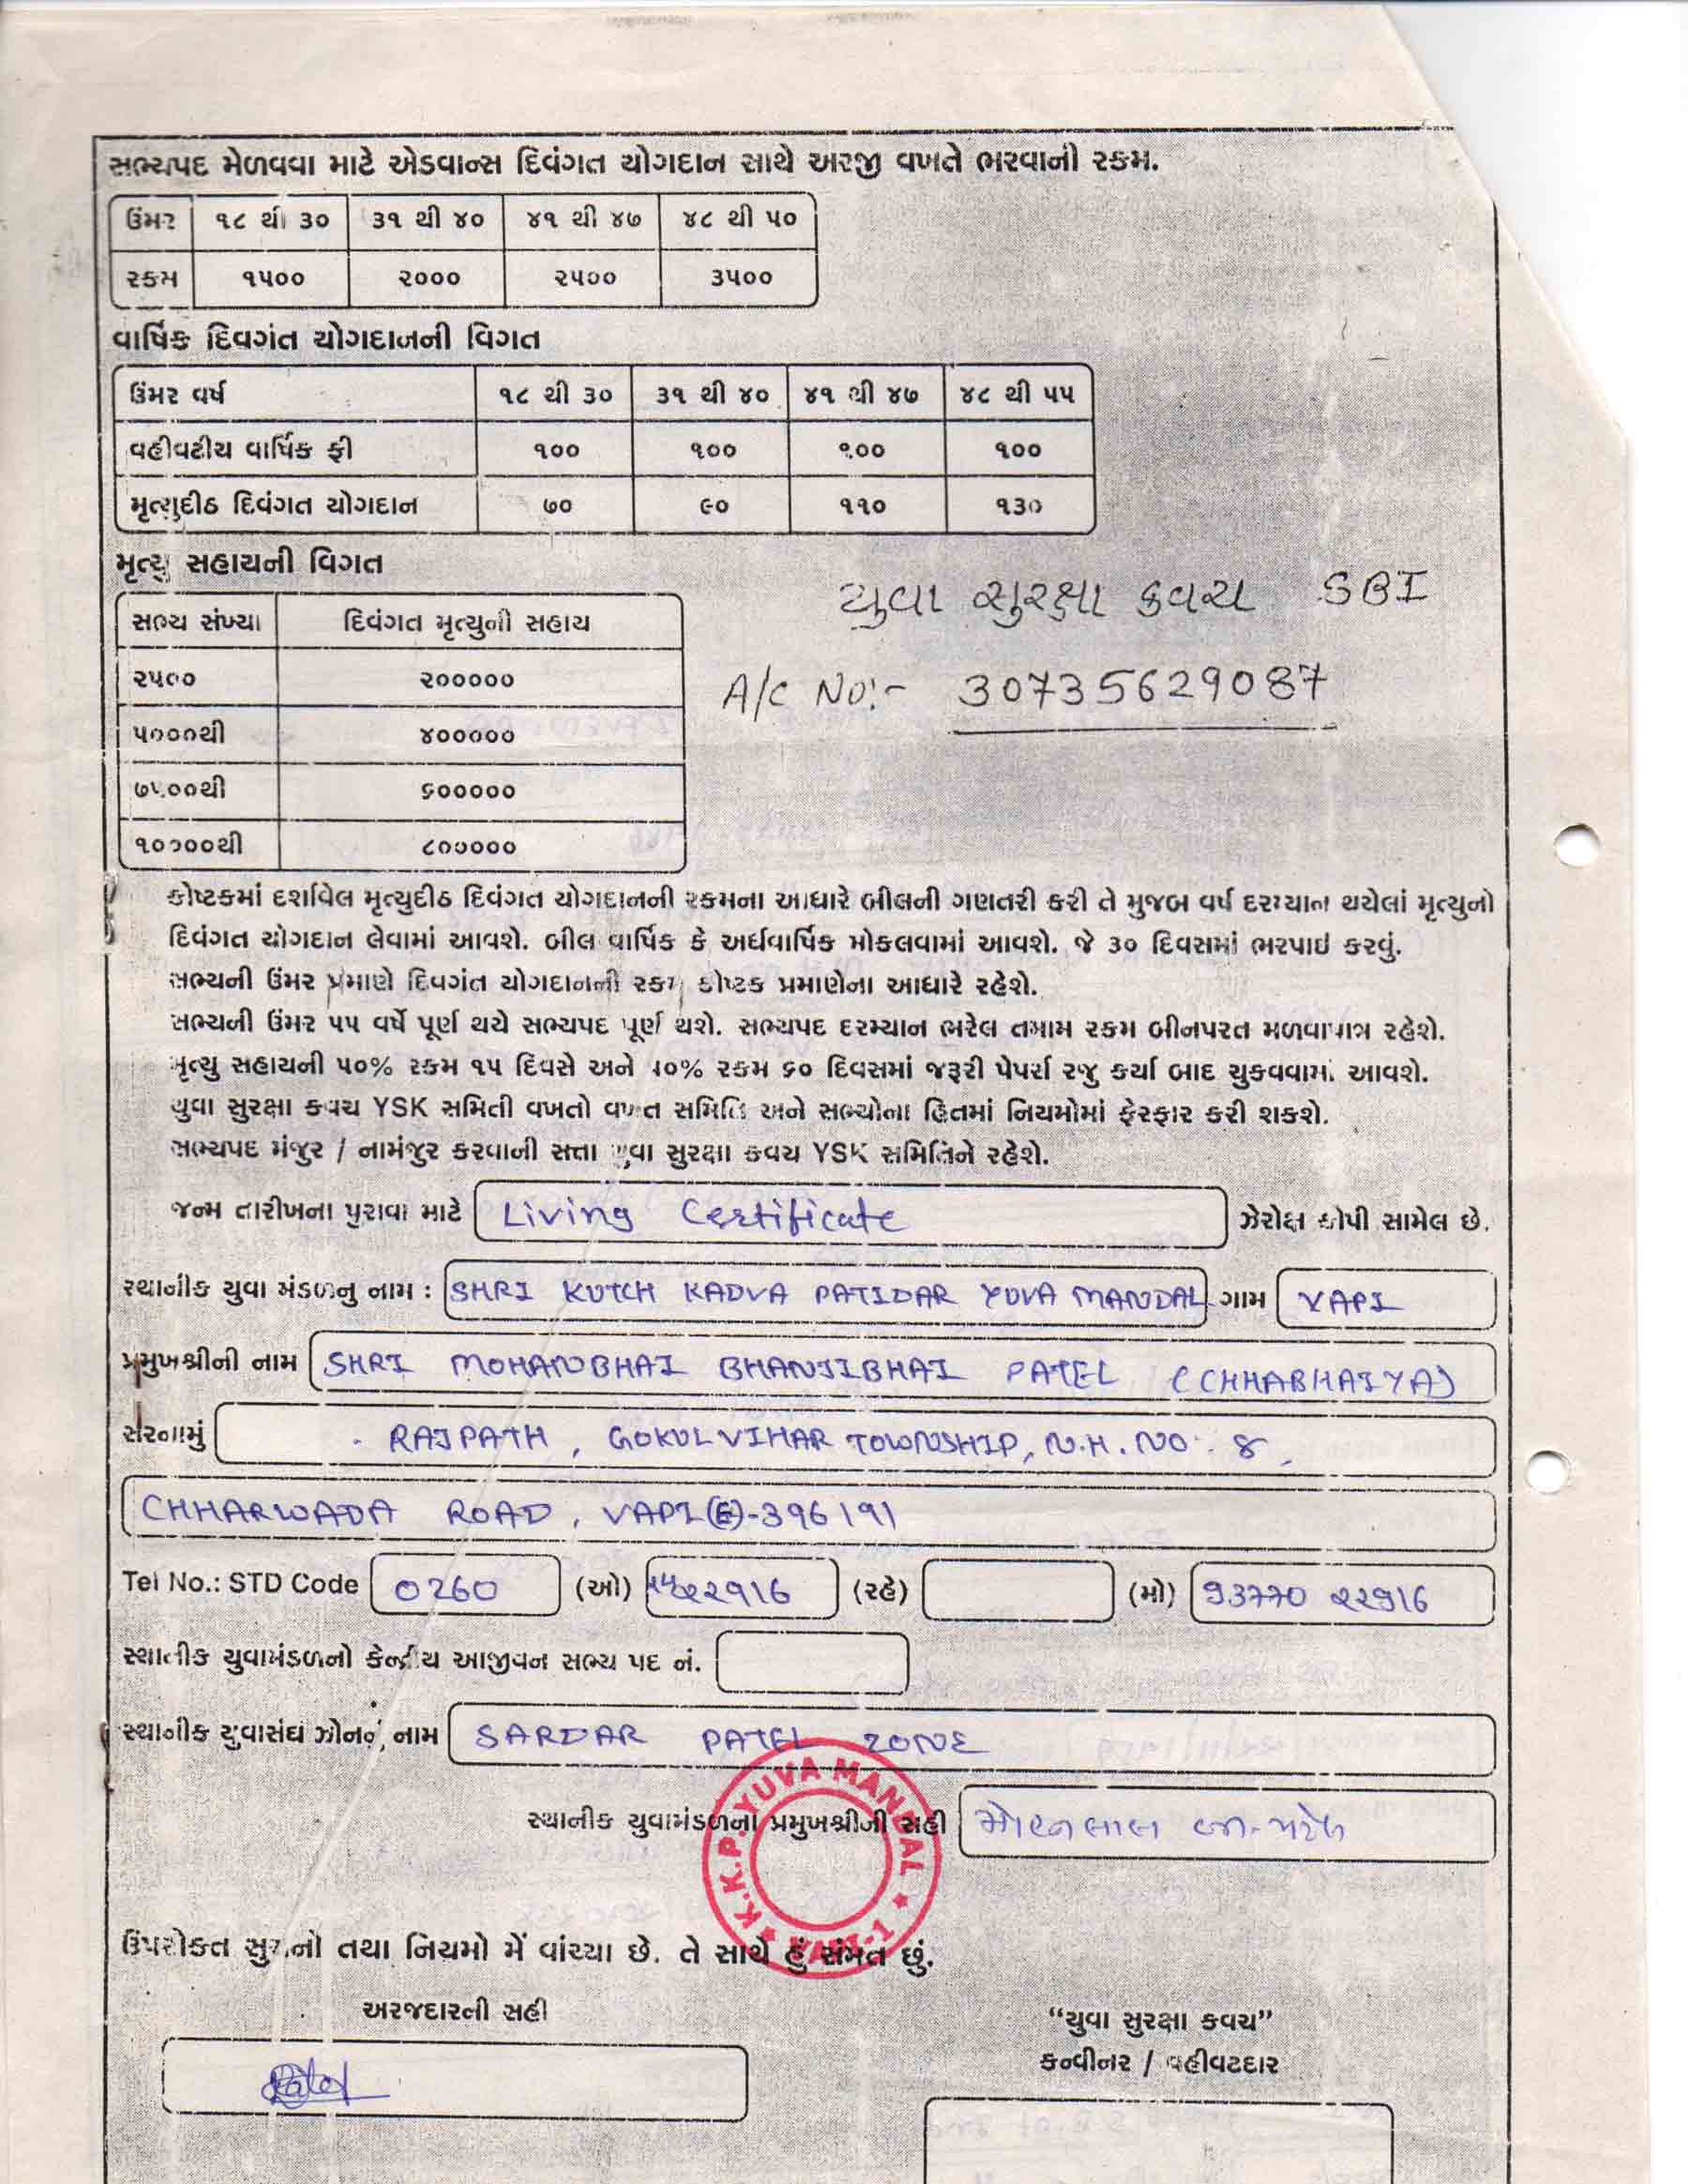 સભ્યપદ મેળવવા માટે એડવાન્સ દિવંગત યોગદાન સાથે અરજી વખતે ભરવાની રકમ.
ઉંમર ૧૮ થી ૩૦ ૩૧ થી ૪૦ ૪૧ થી ૪૭ ૪૮ થી ૫૦
રકમ ૧૫૦૦ ૨૦૦૦ ૨૫૦૦ ૩૫૦૦
વાર્ષિક દિવગંત યોગદાનની વિગત
ઉંમર વર્ષ ૧૮ થી ૩૦ ૩૧ થી ૪૦ ૪૧ થી ૪૭ ૪૮ થી ૫૫
વહીવટીય વાર્ષિક ફી ૧૦૦ ૧૦૦ ૧૦૦ ૧૦૦
મૃત્યુદીઠ દિવંગત યોગદાન ૭૦ ૯૦ ૧૧૦ ૧૩૦
મૃત્યુ સહાયની વિગત
યુવા સુરક્ષા કવચ SBI
સભ્ય સંખ્યા દિવંગત મૃત્યુની સહાય
૨૫૦૦ ૨૦૦૦૦૦
A/C No:- 30735629087
૫૦૦૦થી ૪૦૦૦૦૦
૭૫૦૦થી ૬૦૦૦૦૦
૧૦૦૦૦થી ૮૦૦૦૦૦
કોષ્ટકમાં દર્શાવેલ મૃત્યુદીઠ દિવંગત યોગદાનની રકમના આધારે બીલની ગણતરી કરી તે મુજબ વર્ષ દરમ્યાન થયેલાં મૃત્યુનો
દિવંગત યોગદાન લેવામાં આવશે. બીલ વાર્ષિક કે અર્ધવાર્ષિક મોકલવામાં આવશે. જે ૩૦ દિવસમાં ભરપાઇ કરવું.
સભ્યની ઉંમર પ્રમાણે દિવગંત યોગદાનની રકમ કોષ્ટક પ્રમાણેના આધારે રહેશે.
સભ્યની ઉંમર ૫૫ વર્ષે પૂર્ણ થયે સભ્યપદ પૂર્ણ થશે. સભ્યપદ દરમ્યાન ભરેલ તમામ રકમ બીનપરત મળવાપાત્ર રહેશે.
મૃત્યુ સહાયની ૫૦% રકમ ૧૫ દિવસે અને ૫૦% રકમ ૬૦ દિવસમાં જરૂરી પેપર્સ રજુ કર્યા બાદ ચુકવવામાં આવશે.
યુવા સુરક્ષા કવચ YSK સમિતી વખતો વખત સમિતિ અને સભ્યોના હિતમાં નિયમોમાં ફેરફાર કરી શકશે.
સભ્યપદ મંજુર / નામંજુર કરવાની સત્તા યુવા સુરક્ષા કવચ YSK સમિતિને રહેશે.
જન્મ તારીખના પુરાવા માટે Living Certificate ઝેરોક્ષ કોપી સામેલ છે.
સ્થાનીક યુવા મંડળનુ નામ : SHRI KUTCH KADVA PATIDAR YUVA MANDAL ગામ VAPI
પ્રમુખશ્રીની નામ SHRI MOHANBHAI BHANJIBHAI PATEL (CHHABHAIYA)
સરનામું RAJPATH, GOKULVIHAR TOWNSHIP, N.H. NO. 8,
CHHARWADA ROAD, VAPI (E)-396191
Tel No.: STD Code 0260 (ઓ) (રહે) (મો) 93770 22916
સ્થાનીક યુવામંડળનો કેન્દ્રીય આજીવન સભ્ય પદ નં.
સ્થાનીક યુવાસંઘ ઝોનનું નામ SARDAR PATEL ZONE
K.K.P. YUVA MANDAL VAPI-1
સ્થાનીક યુવામંડળના પ્રમુખશ્રીની સહી મોહનલાલ ભા. પટેલ
ઉપરોક્ત સુચનો તથા નિયમો મેં વાંચ્યા છે. તે સાથે હું સંમત છું.
અરજદારની સહી
"યુવા સુરક્ષા કવચ"
કન્વીનર / વહીવટદાર